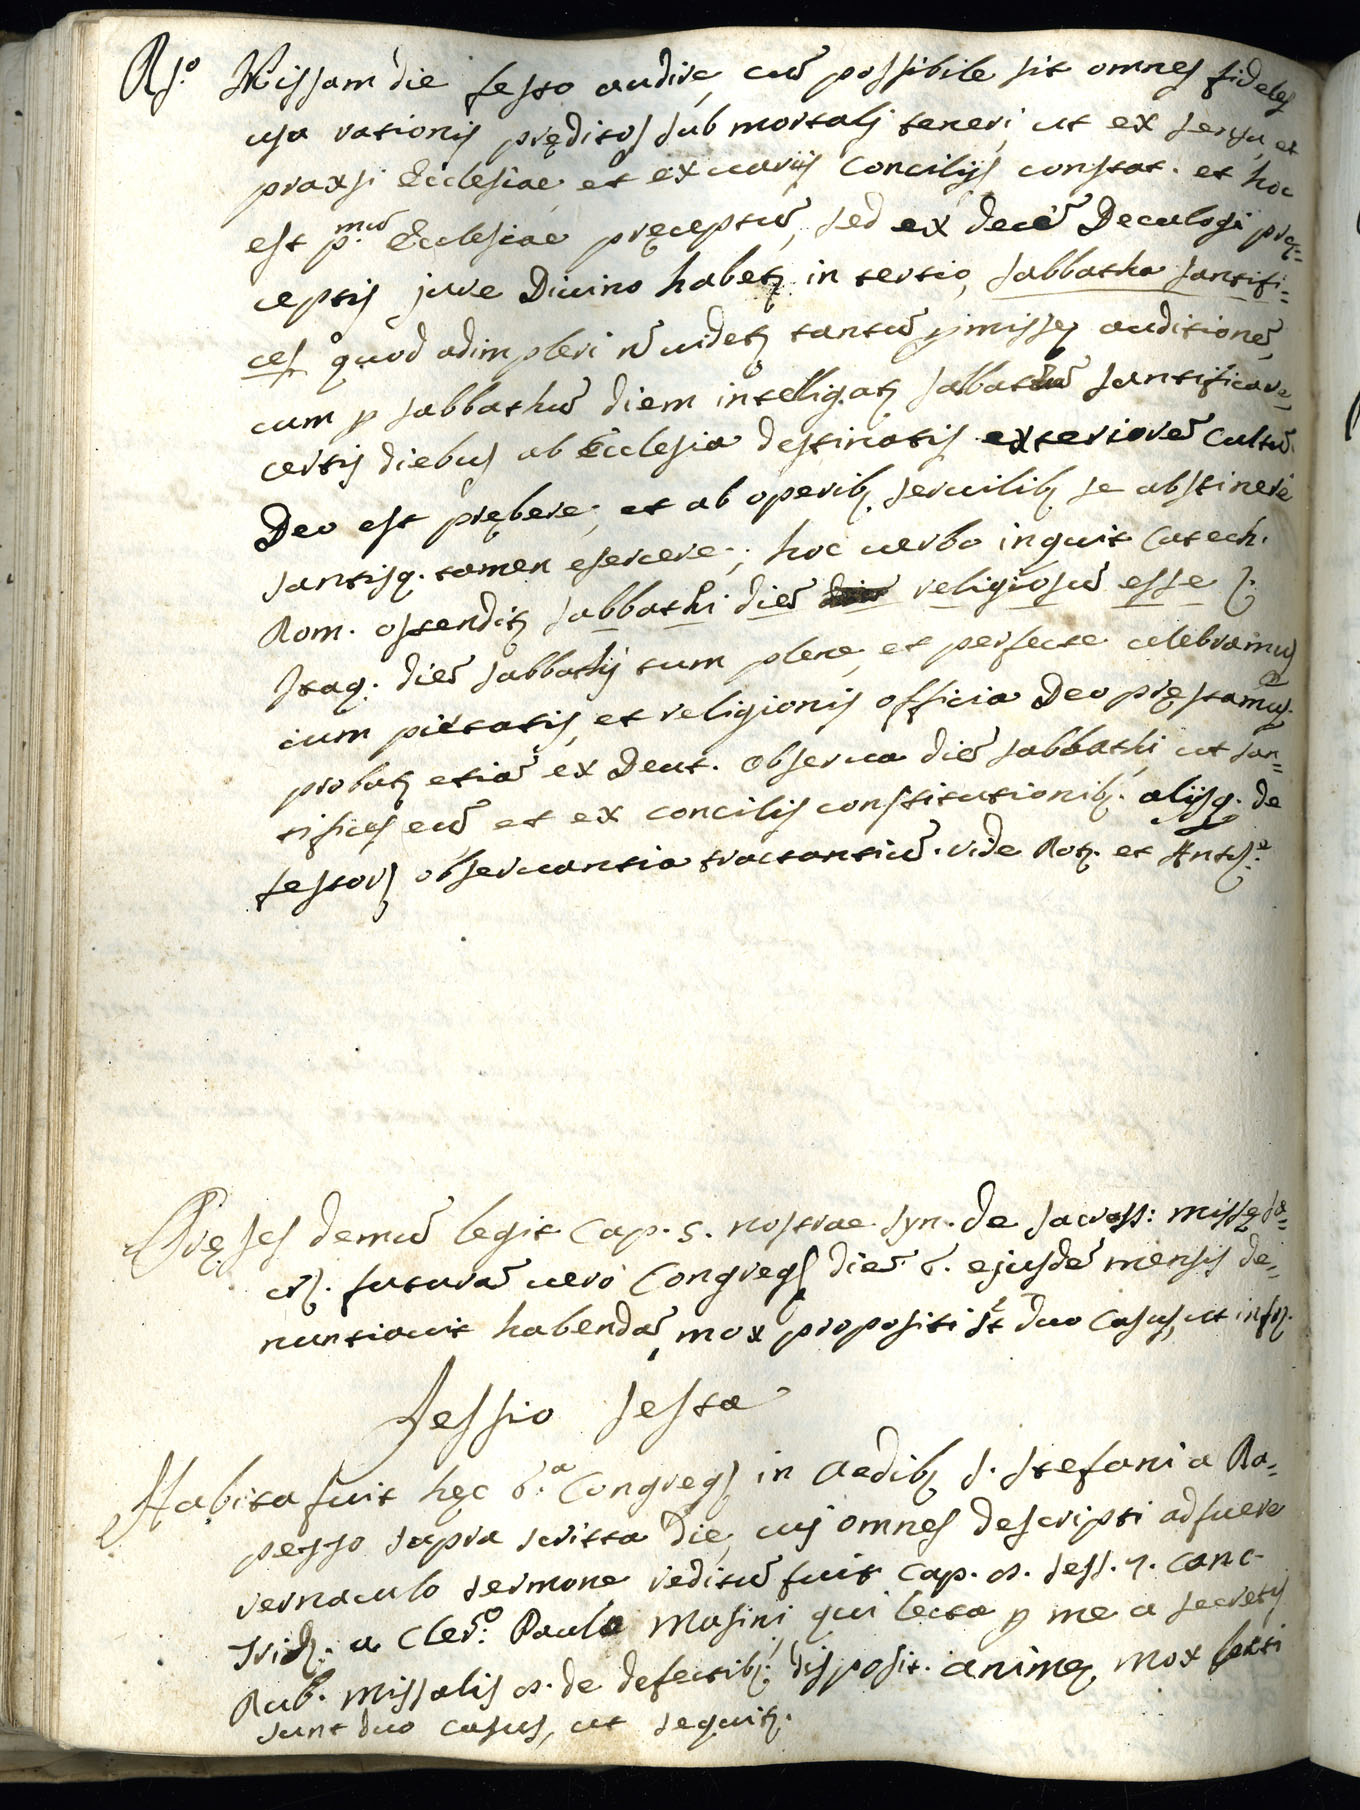 Rs.º Missam die festo audire, cū possibile sit omnes fideles
usa rationis pręditos sub mortali teneri, ut ex sensu, et
praxsi Ecclesiae, et ex uarijs Concilijs constat. et hoc
est p.mū Ecclesiae pręceptū, sed ex decē Decalogi prę-
ceptis jure Diuino habetʒ in tertio, sabbatha santifi-
ces quod adimpleri nō uidetʒ tantū p missę auditionē,
cum p sabbathū diem intelligatʒ sabbathū santificare,
certis diebus ab Ecclesia destinatis exteriorē cultū
Deo est prębere, et ab operibʒ seruilibʒ se abstinere
santisqʒ. tamen esercere; hoc uerbo inquit Catech.
Rom. ostenditʒ sabbathi diē religiosū esse
Itaqʒ. diē sabbathij tum plene, et perfecte celebramus
cum pietatis, et religionis officia Deo pręstamus.
probatʒ etiā ex Deut. Obserua diē sabbathi, ut san-
tifices eū et ex concilijs constitutionibʒ. alijsqʒ. de
festorʒ obseruantia tractantiū. vide Rotʒ. et
Pręses demū legit Cap. 5. nostrae syn. de sacross: missę sa-
crʒ. futurā uero Congregʒ diē 6. ejusdē mensis de-
nuntiauit habendā, mox propositi st duo Casus, ut infrʒ.
Sessio sesta
Habita fuit hęc 6.ª Congregʒ in Aedibʒ S. Stefani a Ra-
pezzo supra scritta die, cuj omnes descripti adfuere
vernaculo sermone reditū fuit Cap. 8. sess. 7. Conc.
Tridʒ. a Cler.º Paulo Masini, qui lecta p me a secretis
Rub. missalis 8. de defectibʒ. disposit. animę, mox lecti
sunt duo casus, ut sequitʒ.